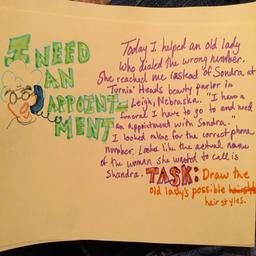 I NEED
AN
APPOINT-
MENT
Today I helped an old lady
who dialed the wrong number.
She reached me instead of Sondra, at
Turnin' Heads beauty parlor in
Leigh, Nebraska. "I have a
funeral I have to go to and need
an appointment with Sondra."
I looked online for the correct phone
number. Looks like the actual name
of the woman she wanted to call is
Shandra. TASK: Draw the
old lady's possible hairstyle
hair styles.